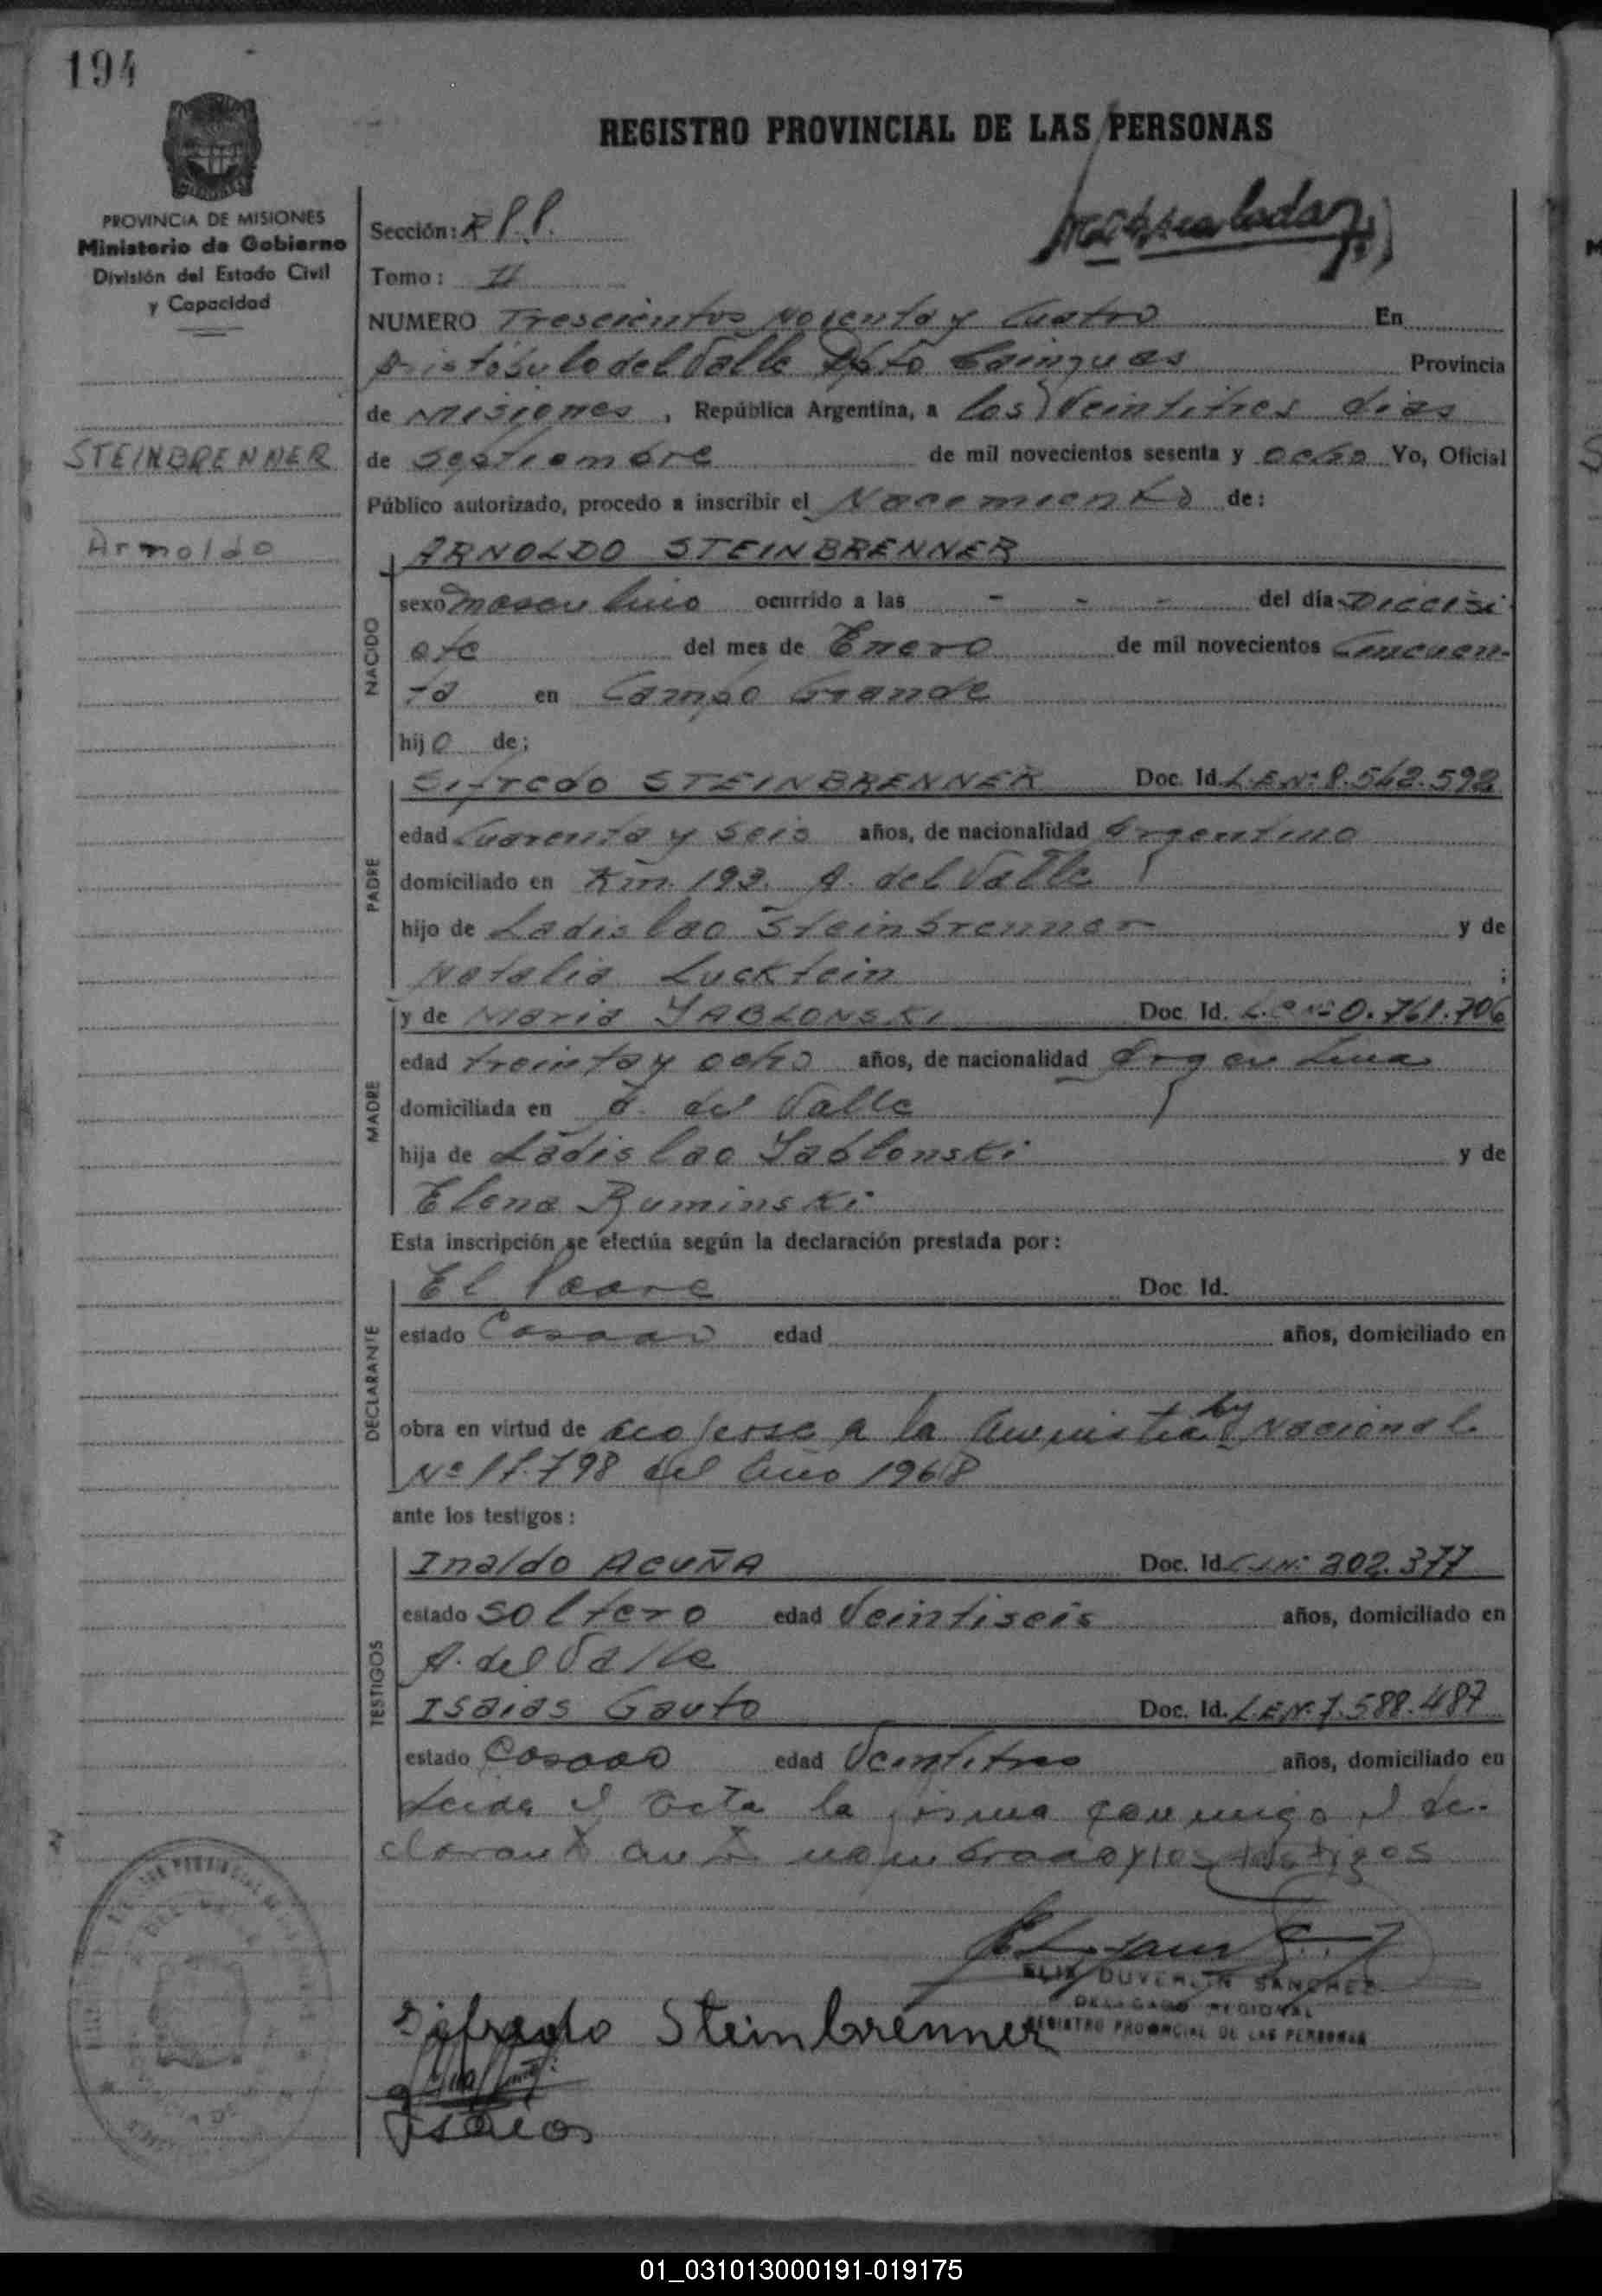 194
REGISTRO PROVINCIAL DE LAS PERSONAS
PROVINCIA DE MISIONES
Ministerio de Gobierno
División del Estado Civil
y Capacidad
Sección: R P.P.
Tomo: II
NUMERO Trescientos Noventa y Cuatro En
Aristóbulo del Valle Dpto Cainguas Provincia
de Misiones, República Argentina, a los Veintitres dias
STEINBRENNER
de Septiembre de mil novecientos sesenta y ocho Yo, Oficial
Público autorizado, procedo a inscribir el Nacimiento de:
Arnoldo
ARNOLDO STEINBRENNER
NACIDO
sexo masculino ocurrido a las - - - del día Diecisi
ete del mes de Enero de mil novecientos Cincuen-
ta en Campo Grande
hijo de;
PADRE
Sifredo STEINBRENNER Doc. Id. L.E.Nº 8.542.592
edad Cuarenta y Seis años, de nacionalidad Argentino
domiciliado en Km. 193. A. del Valle
hijo de Ladislao Steinbrenner y de
Natalia Lucktein ;
MADRE
y de Maria JABLONSKI Doc. Id. L.C Nº 0.761.706
edad treinta y ocho años, de nacionalidad Argentina
domiciliada en A. del Valle
hija de Ladislao Jablonski y de
Elena Ruminski
Esta inscripción se efectúa según la declaración prestada por:
DECLARANTE
El Padre Doc. Id.
estado Casado edad años, domiciliado en
obra en virtud de acojerse a la Amnistia Ley Nacional
Nº 17.798 del Año 1968
ante los testigos:
TESTIGOS
Inaldo ACUÑA Doc. Id. C.I.Nº 202.377
estado Soltero edad Veintiseis años, domiciliado en
A. del Valle
Isaias Gauto Doc. Id. L.E.Nº 7.588.487
estado Casado edad Veintitres años, domiciliado en
Leida el Acta la firma conmigo el de-
clarante ante nombrado y los testigos
DUVERLIN SANCHEZ
DELEGADO REGIONAL
REGISTRO PROVINCIAL DE LAS PERSONAS
Sifredo Steinbrenner
Isaias
01_031013000191-019175